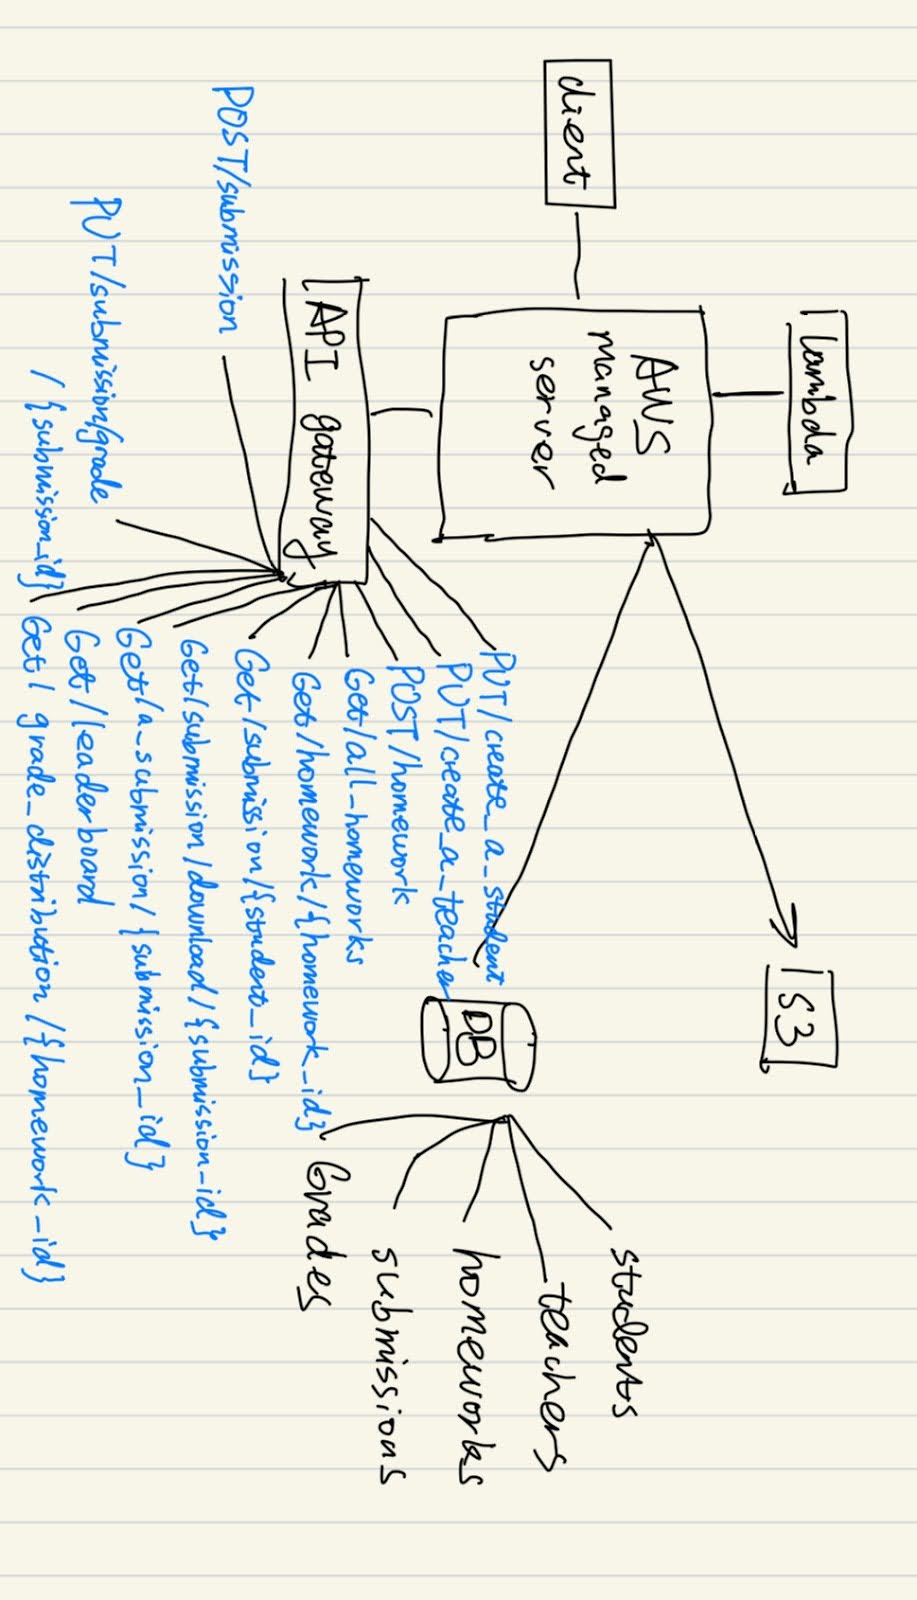 Lambda
S3
AWS
managed
server
client
students
teachers
DB
homeworks
submissions
Grades
API gateway
PUT/create_a_student
PUT/create_a_teacher
POST/homework
Get/all_homeworks
Get/homework/{homework_id}
Get/submission/{student_id}
Get/submission/download/{submission_id}
Get/a_submission/{submission_id}
Get/leaderboard
Get/ grade_distribution/{homework_id}
POST/submission
PUT/submission/grade
/{submission_id}